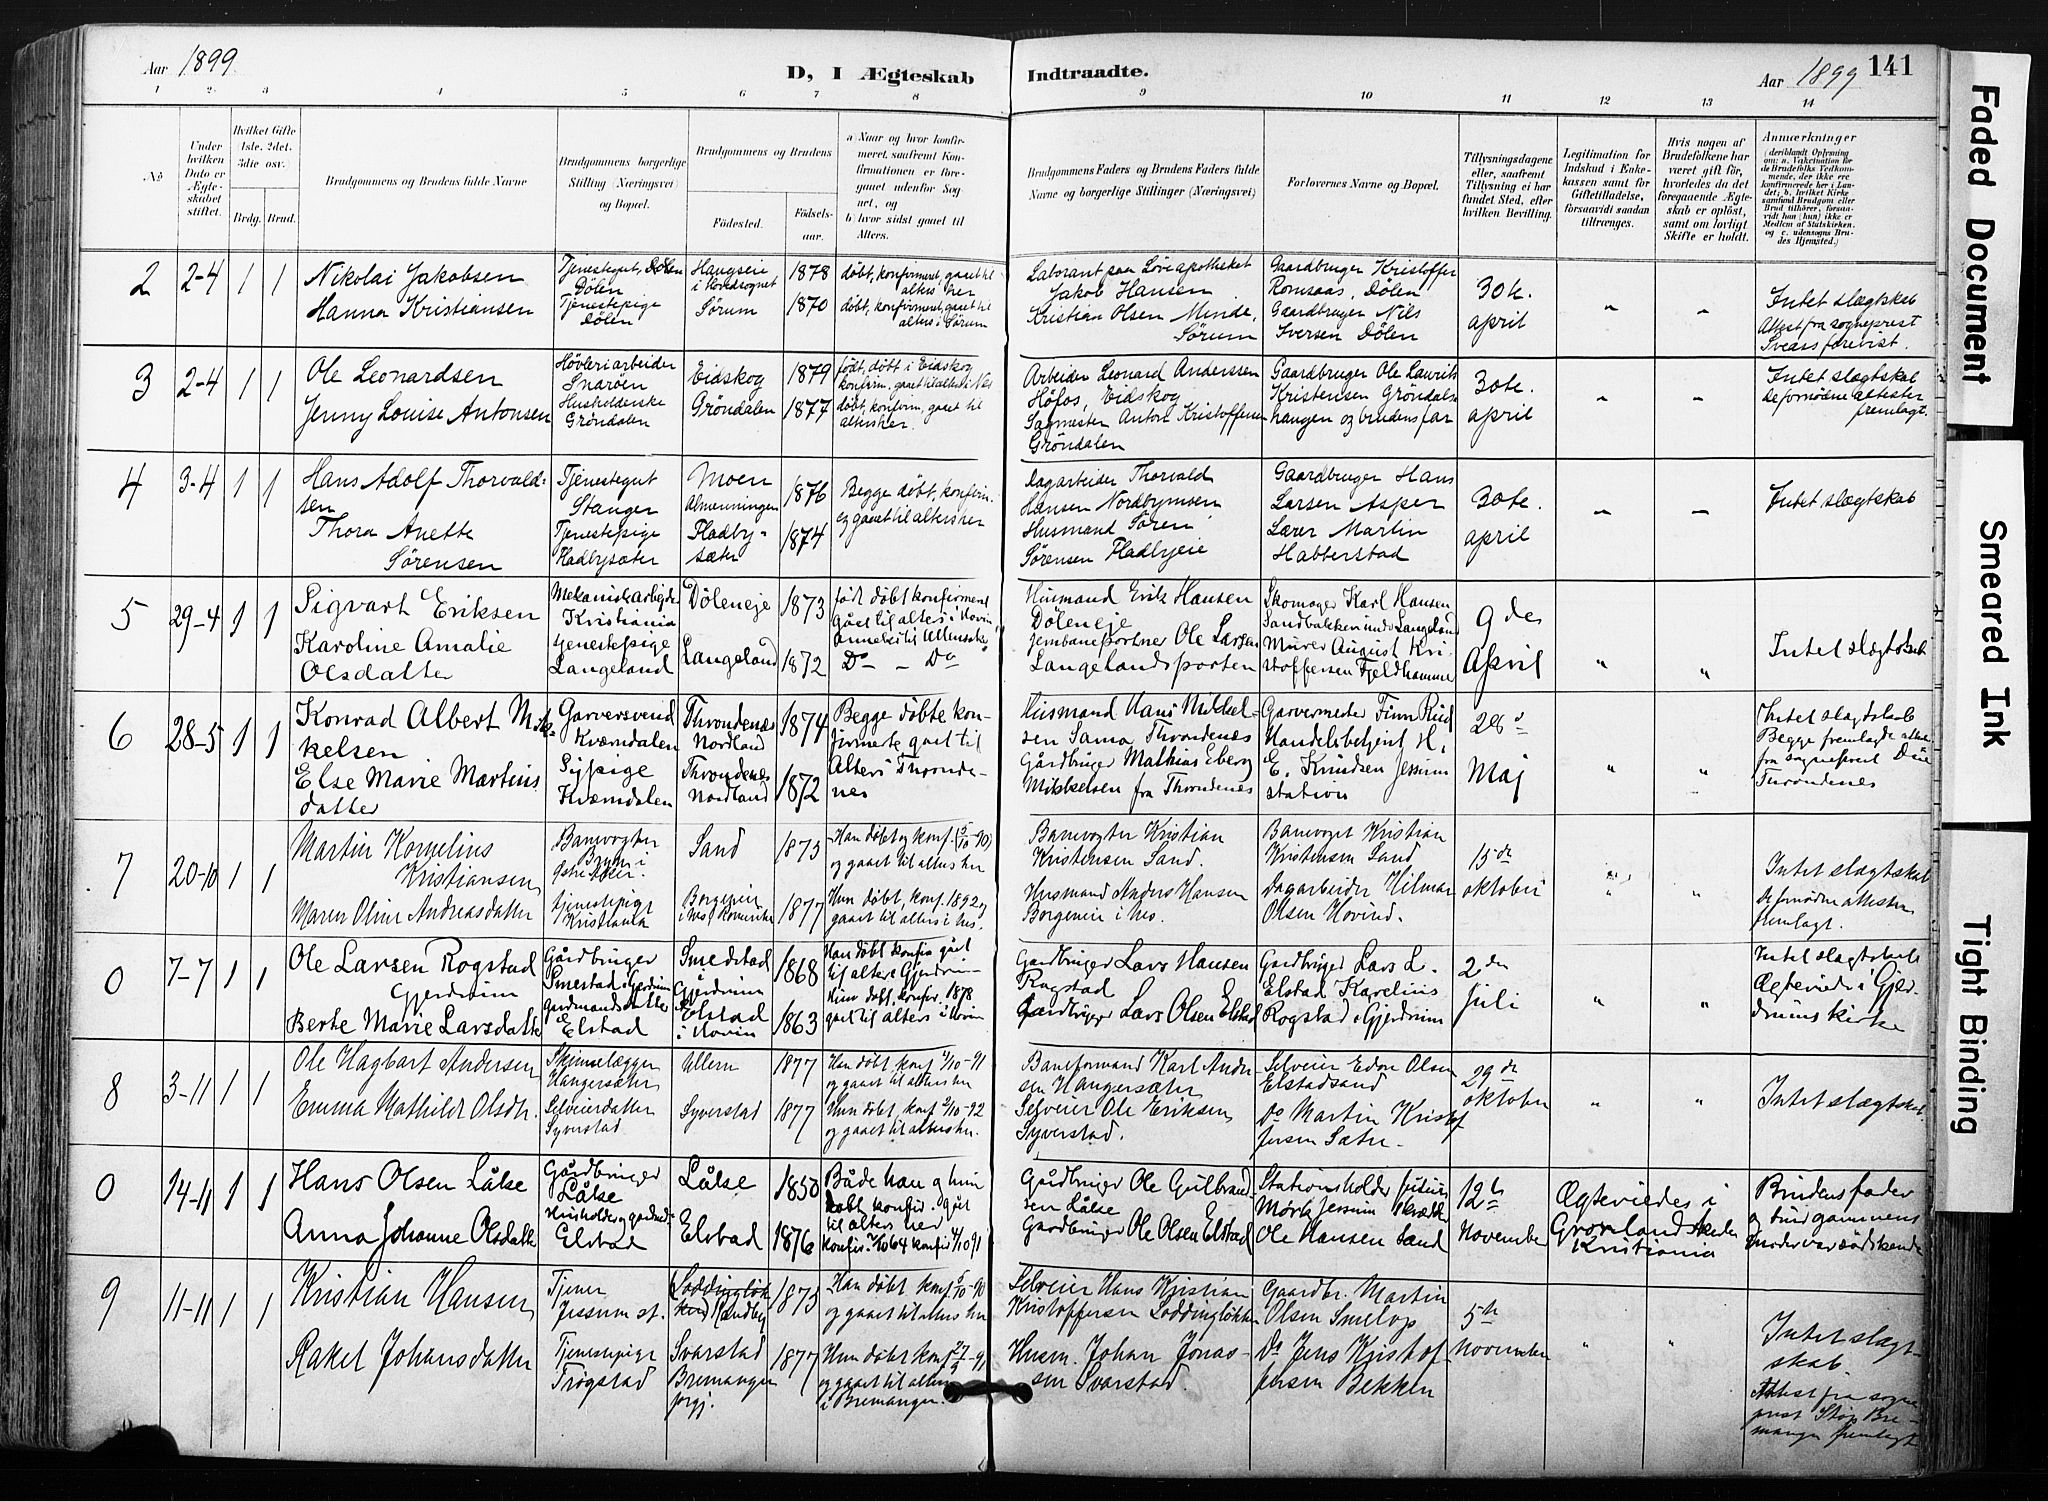 Aar 1899
D, I Ægteskab
Indtraadte.
Aar 1899
141
1 2 3 4 5 6 7 8 9 10 11 12 13 14
No
Under
hvilken
Dato er
Ægte-
skabet
stiftet.
Hvilket Gifte
1ste. 2det.
3die osv.
Brdg. Brud.
Brudgommens og Brudens fulde Navne
Brudgommens borgerlige
Stilling (Næringsvei)
og Bopæl.
Brudgommens og Brudens
Fødested.
Fødsels-
aar.
a) Naar og hvor konfir-
meret, saafremt Kon-
firmationen er fore-
gaaet udenfor Sog-
net, og
b) hvor sidst gaaet til
Alters.
Brudgommens Faders og Brudens Faders fulde
Navne og borgerlige Stillinger (Næringsvei)
Forlovernes Navne og Bopæl.
Tillysningsdagene
eller, saafremt
Tillysning ei har
fundet Sted, efter
hvilken Bevilling.
Legitimation for
Indskud i Enke-
kassen samt for
Giftetilladelse,
forsaavidt saadan
tiltrænges.
Hvis nogen af
Brudefolkene har
været gift før,
hvorledes da det
foregaaende Ægte-
skab er opløst,
samt om lovligt
Skifte er holdt.
Anmærkninger
(deriblandt Oplysning
om: a. Vakcination for
de Brudefolks Vedkom-
mende, der ikke ere
konfirmerede her i Lan-
det; b. hvilket Kirke
samfund Brudgom eller
Brud tilhører, forsaa-
vidt han (hun) ikke er
Medlem af Statskirken,
og c. udensogns Bru-
des Hjemsted.)
2 2-4 1 1
Nikolai Jakobsen
Hanna Kristiansen
Tjenestegut, Dølen
Dølen
Tjenestepige
Dølen
i Hovedsognet
Sørum
1878
1870
døbt, konfirmeret, gaaet til
alters her
døbt, konfirmeret, gaaet til
alters i Sørum
Laborant paa Løveapotheket
Jakob Hansen
Kristian Olsen Minde,
Sørum
Gaardbruger Kristoffer
Romsaas, Dølen
Gaardbruger Nils
Iversen Dølen
30te.
april
Intet slægtskab
Attest fra sogneprest
forevist.
3 2-4 1 1
Ole Leonardsen
Jenny Louise Antonsen
Høvleriarbeider
Snaroen
Husholderske
Grøndalen
Eidskog
Grøndalen
1879
1877
født, døbt i Eidskog
konfirm. gaaet til alters i Nes
døbt, konfirm, gaaet til
alters her.
Arbeider Leonard Anderssen
Høfos, Eidskog
Sagmester Anton Kristoffersen
Grøndalen
Gaardbruger Ole Laurits
Kristensen Grøndals-
haugen og brudens far
30te.
april
Intet slægtskab
De fornødne attester
fremlagt.
4 3-4 1 1
Hans Adolf Thorvald-
sen
Thora Anette
Sørensen
Tjenestegut
Stanger
Tjenestepige
Fladbysæter
Moen
Almenningen
Fladby-
sæter
1876
1874
Begge døbt, konfirm.
og gaaet til alters her
Dagarbeider Thorvald
Hansen Nordbymoen
Husmand Søren
Sørensen Fladbyeie
Gaardbruger Hans
Larsen Asper
Lærer Martin
Habberstad
30te.
april
Intet slægtskab
5 29-4 1 1
Sigvart Eriksen
Karoline Amalie
Olsdatter
Mekanisk Arbejder
Kristiania
tjenestepige
Langeland
Døleneje
Langeland
1873
1872
født døbt konfirmeret
gået til alters i Hovin,
Do - Do
Husmand Erik Hansen
Døleneje
Jernbaneportner Ole Larsen
Langelandsporten
Skomager Karl Hansen
Sandbakken under Langeland
Murer August Kri-
stoffersen Fjeldhammer
9de
April
Intet slægtskab
6 28-5 1 1
Konrad Albert Mik-
kelsen
Else Marie Martins
datter
Garversvend
Kværndalen
Sypige
Kværndalen
Throndenæs
Nordland
Throndenæs
Nordland
1874
1872
Begge døbte kon-
firmerte gået til
Alters Thronde-
nes
Husmand Hans Mikkel-
sen Sama Throndenæs
Gårdbruger Mathias Eberg
Mikkelsen fra Throndenæs
Garvermester Finn Rud
Handelsbetjent H.
E. Knudsen Jessum
station
28d
Maj
Intet slægtskab
Begge fremlagde attest
fra sogneprest
Throndenes
7 20-10 1 1
Martin Kornelius
Kristiansen
Maren Oline Andreasdatter
Banevogter
tjenestepige
Kristiania
Sand
Borgeneie
1873
1877
Han døbt og konf. (5/10-90)
og gaaet til alters her
Hun døbt, konf. 1892 og
gaaet til alters i Nes.
Banevogter Kristian
Kristensen Sand.
Husmand Anders Hansen
Borgeneie i Nes.
Banevogt Kristian
Kristensen Sand
Dagarbeider Hilmar
Olsen Hovind.
15de
oktober
Intet slægtskab
De fornødne attester
fremlagt.
0 7-7 1 1
Ole Larsen Rogstad
Gjerdrum
Berte Marie Larsdatter
Gårdbruger
Smestad i Gjerdrum
gardmandsdatter
Elstad
Smedstad
Gjerdrum
Elstad
i Hovin
1868
1863
Han døbt konfir gået
til alters Gjerdrum
Hun døbt, konfir. 1878
gaet til alters i Hovin
Gardbruger Lars Hansen
Rogstad
Gardbruger Lars Olsen Elstad
Gardbruger Lars L.
Elstad Karelius
Rogstad i Gjerdrum
2den
juli
Intet slægtskab
Ægteviede i Gjer-
drums kirke
8 3-11 1 1
Ole Hagbart Andersen
Emma Mathilde Olsdtr.
Skinnelægger
Hangersæter
Selveierdatter
Syverstad.
Ullern
Syverstad
1877
1877
Han døbt, konf. 4/10-91
og gaaet til alters her
Hun døbt, konf. 2/10-92
og gaaet til alters her.
Baneformand Karl Ander-
sen Hangersæter
Selveier Ole Eriksen
Syverstad.
Selveier Edon Olsen
Elstadsand
do Martin Kristof-
fersen Sæter.
29de
oktober
Intet slægtskab.
0 14-11 1 1
Hans Olsen Låke
Anna Johanne Olsdatter
Gårdbruger
Låke
Elstad
Låke
Elstad
1850
1876
Både han og hun
døbt konfir. gået
til alters her
Gårdbruger Ole Gulbrand-
sen Låke
Gardbruger Ole Olsen Elstad
Stationsholder
Mørk Jessum
Ole Hansen Sand
12te
November
Ægteviedes i
Grønlands kirke
Kristiania
Brudens fader
og brudgommens
moder var sødskende
9 11-11 1 1
Kristian Hansen
Rakel Johansdatter
Tjener
Jessum st.
Tjenestepige
Trøgstad
Svarstad
Bremanger
prgj.
1875
1877
Han døbt konf 5/10-90
og gaaet til alters her
Hun døbt konf 27/9-91
og gaaet til alters
i Bremanger.
Selveier Hans Kristian
Kristoffersen Loddingløkken
Husm. Johan Jonas-
sen Svarstad.
Gaardbr. Martin
Olsen Smelop
Do Jens Kristof-
fersen Bekken
5te
November
Intet slægt-
skab.
Attest fra sogne
prest Bre-
manger fremlagt
Faded Document
Smeared Ink
Tight Binding